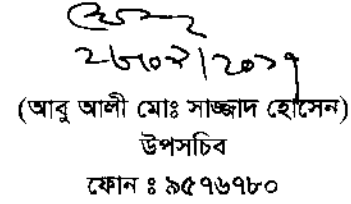 ২৮০২|২০১৭
(আবু আলী মোঃ সাজ্জাদ হোসেন)
উপসচিব
ফোন ঃ ৯৫৭৬৭৮০